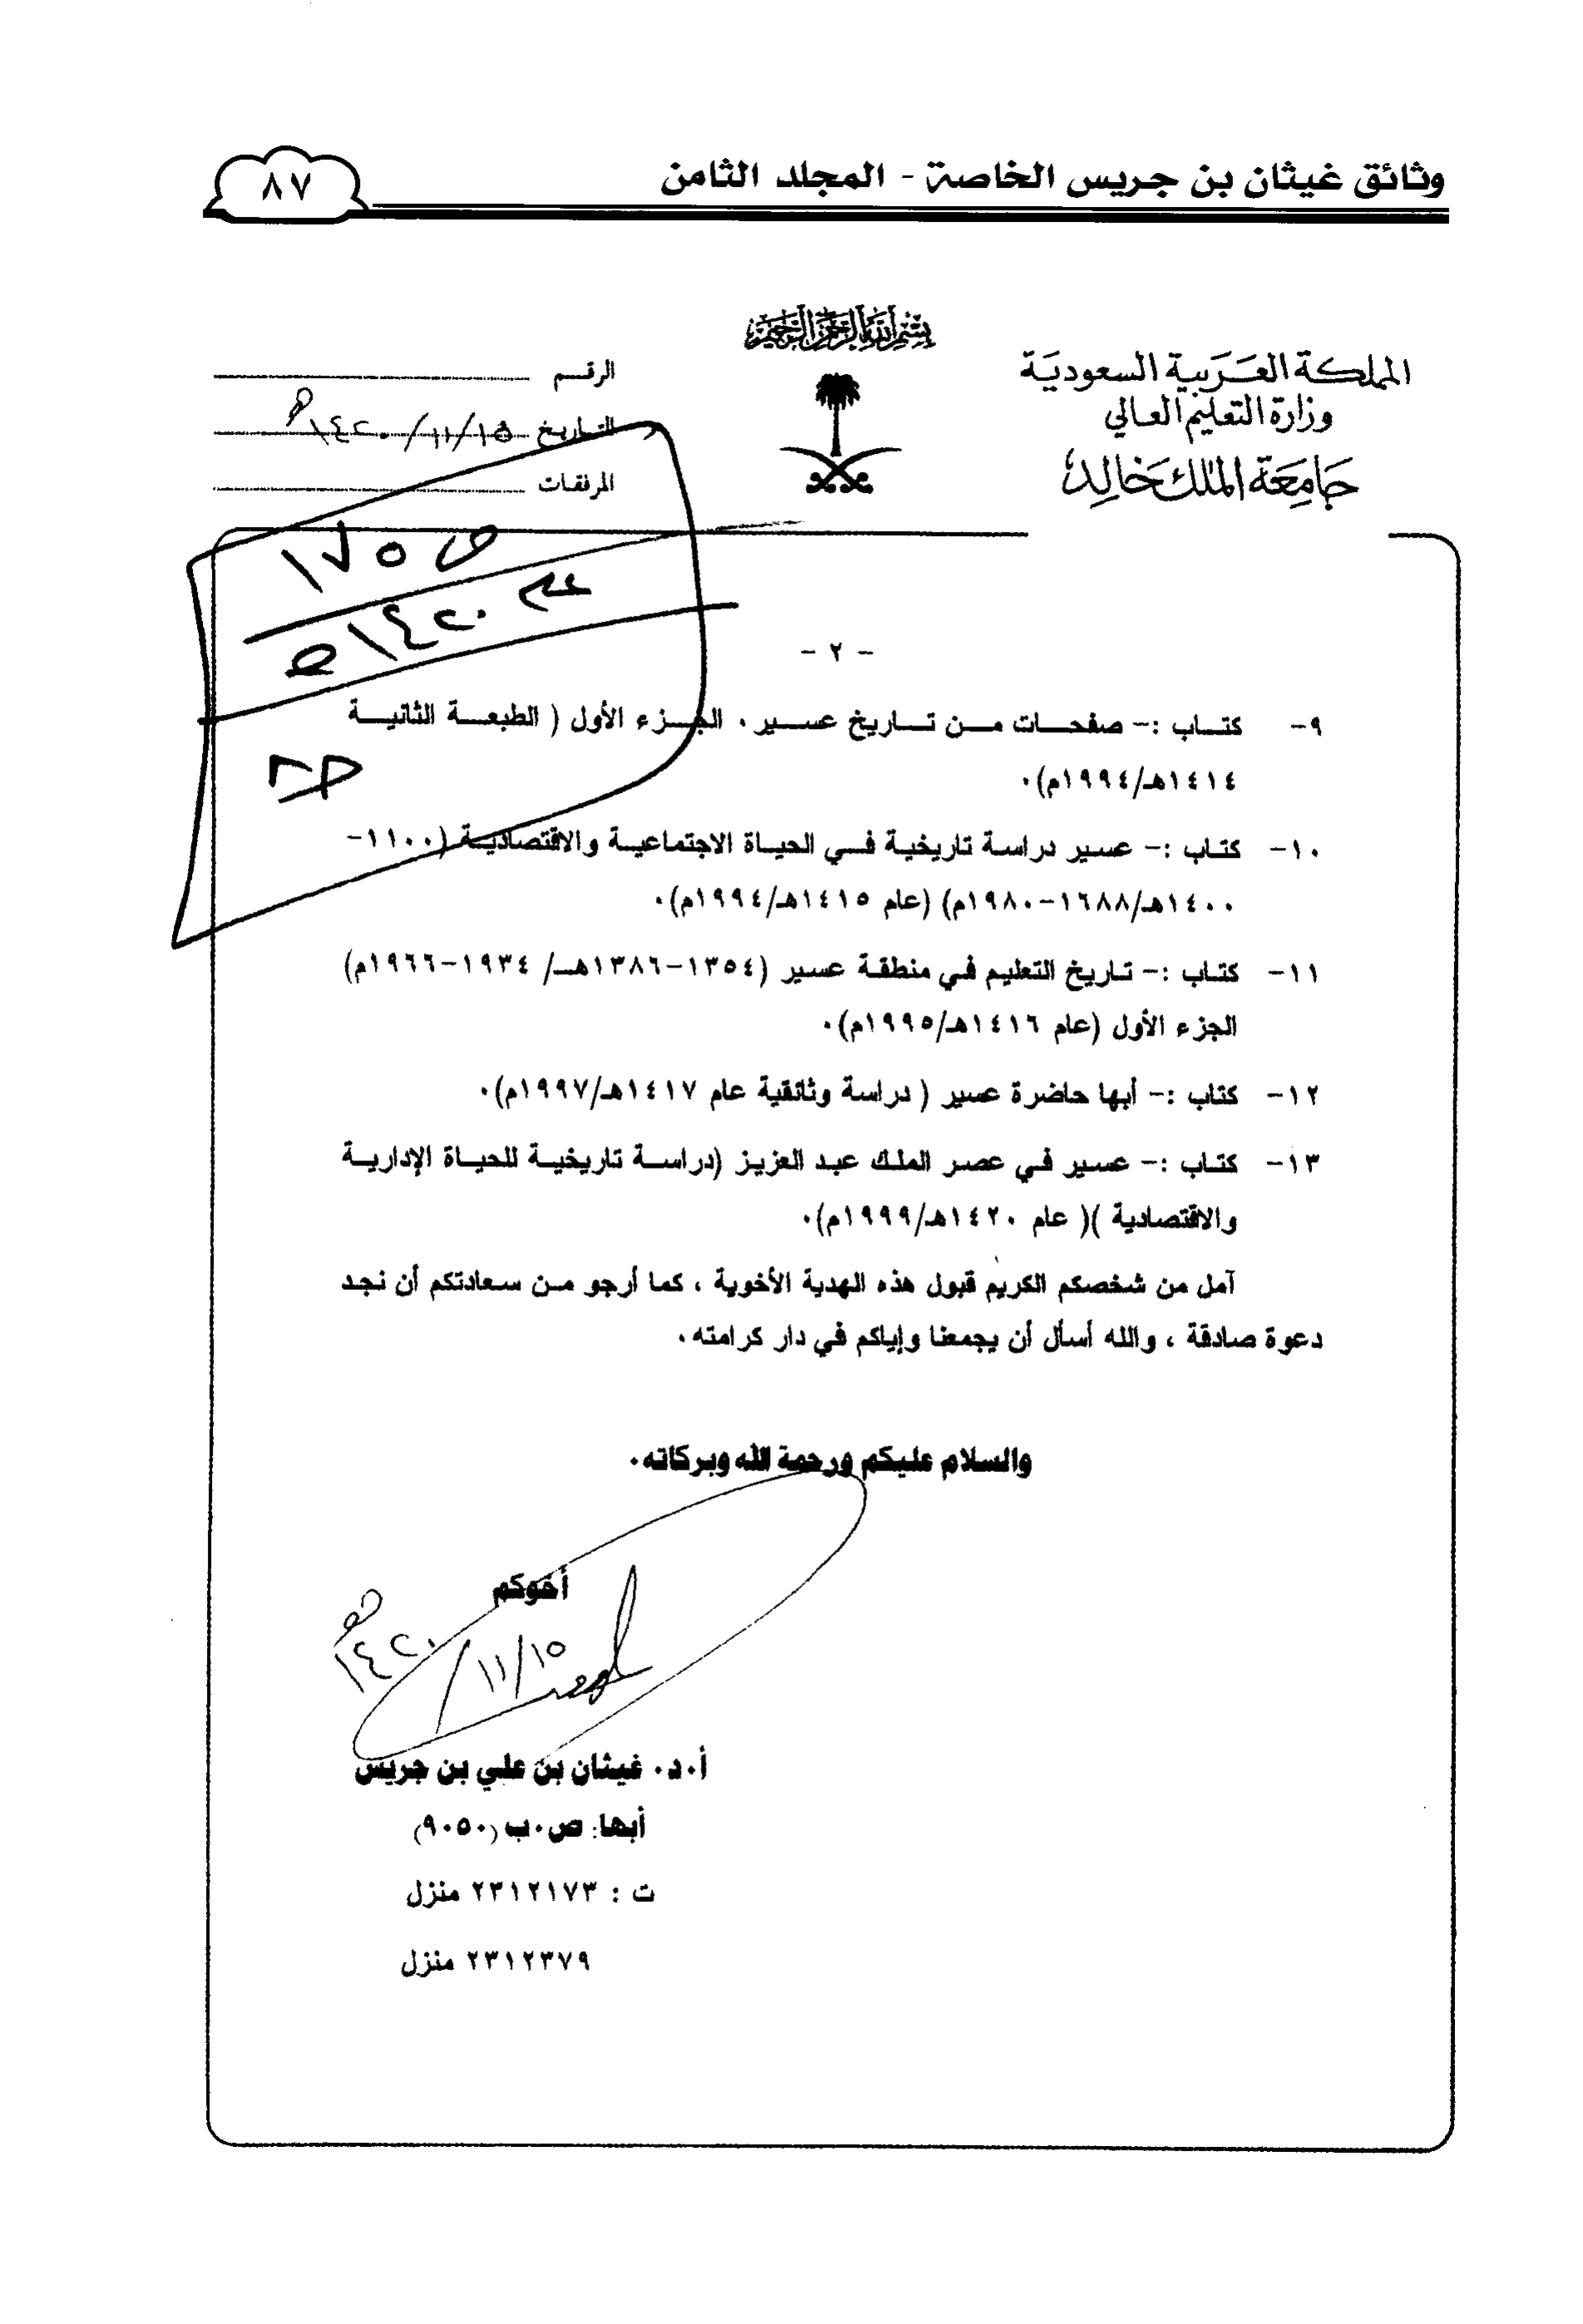 وثائق غيثان بن جريس الخاصة - المجلد الثامن
٨٧
بسم الله الرحمن الرحيم
المملكة العربية السعودية
وزارة التعليم العالي
جامعة الملك خالد
الرقم
التاريخ ١٥/١١/١٤٢٠هـ
المرفقات
١٧٥
عام ١٤٢٠هـ
- ٢ -
٩- كتاب :- صفحات من تاريخ عسير. الجزء الأول ( الطبعة الثانية
١٤١٤هـ/١٩٩٤م).
١٠- كتاب :- عسير دراسة تاريخية في الحياة الاجتماعية والاقتصادية (١١٠٠-
١٤٠٠هـ/١٦٨٨-١٩٨٠م) (عام ١٤١٥هـ/١٩٩٤م).
١١- كتاب :- تاريخ التعليم في منطقة عسير (١٣٥٤-١٣٨٦هـ/ ١٩٣٤-١٩٦٦م)
الجزء الأول (عام ١٤١٦هـ/١٩٩٥م).
١٢- كتاب :- أبها حاضرة عسير ( دراسة وثائقية عام ١٤١٧هـ/١٩٩٧م).
١٣- كتاب :- عسير في عصر الملك عبد العزيز (دراسة تاريخية للحياة الإدارية
والاقتصادية )( عام ١٤٢٠هـ/١٩٩٩م).
آمل من شخصكم الكريم قبول هذه الهدية الأخوية ، كما أرجو من سعادتكم أن نجد
دعوة صادقة ، والله أسأل أن يجمعنا وإياكم في دار كرامته.
والسلام عليكم ورحمة الله وبركاته.
أخوكم
١٥/١١/١٤٢٠هـ
أ.د. غيثان بن علي بن جريس
أبها: ص.ب (٩٠٥٠)
ت : ٢٣١٢١٧٣ منزل
٢٣١٢٣٧٩ منزل